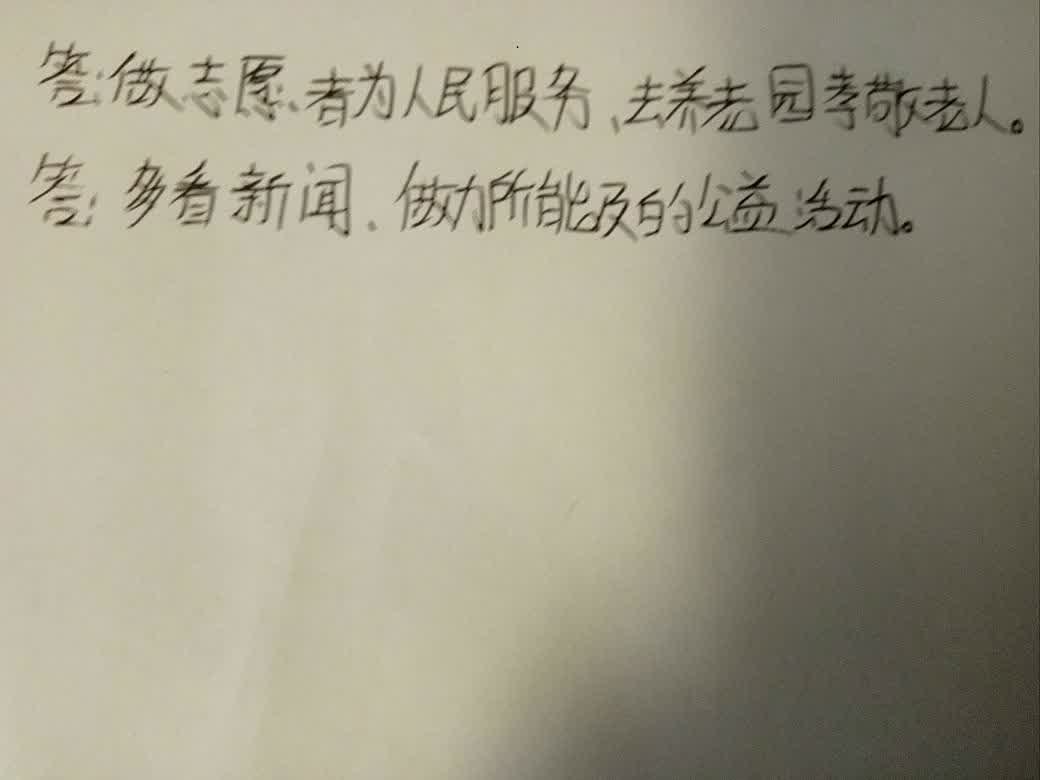 答:做志愿者为人民服务、去养老园孝敬老人。
答:多看新闻、做力所能及的公益活动。